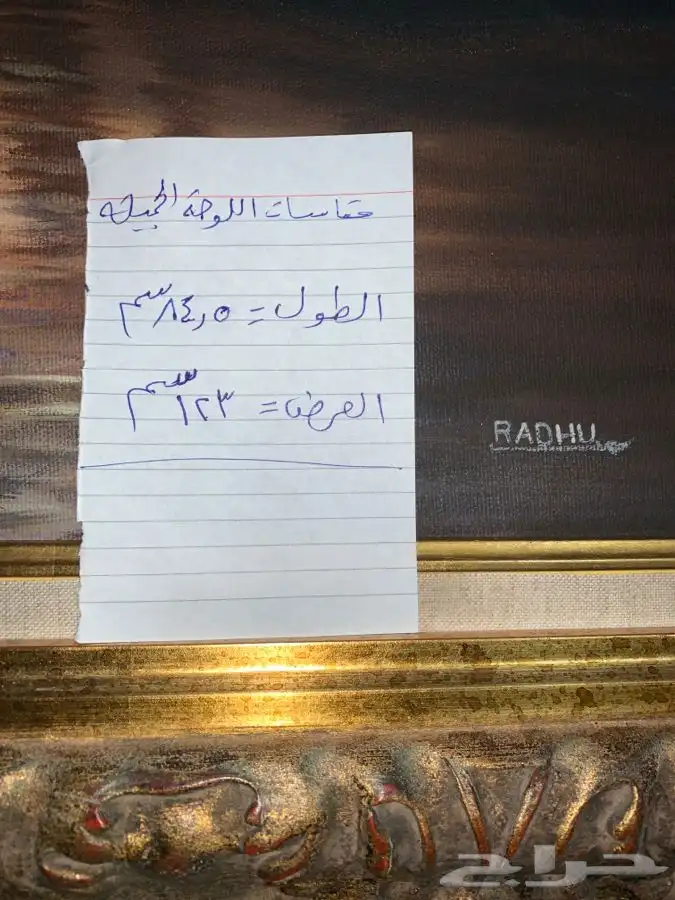 مقاسات اللوحة الجميلة
الطول = ٨٤٫٥ سم
العرض = ١٢٣ سم
RADHU
حراج